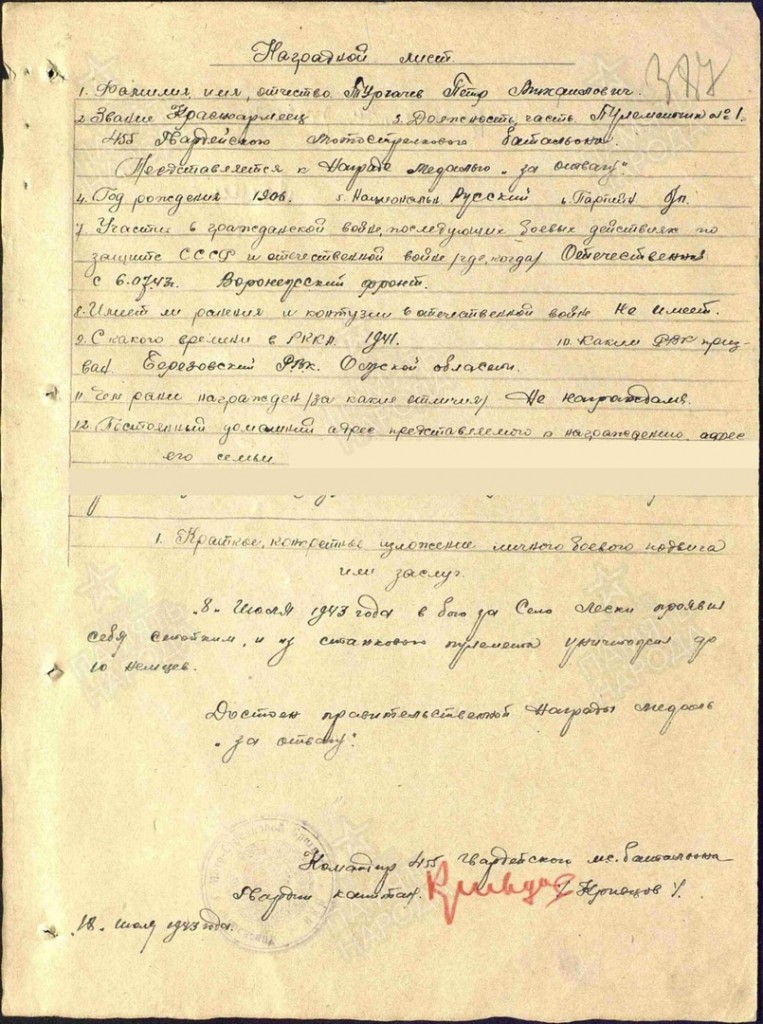 Наградной лист.
387
1. Фамилия, имя, отчество Тургачев Пётр Михайлович.
2. Звание Красноармеец 3. Должность, часть Пулеметчик №1.
455 Гвардейского Мотострелкового батальона.
Представляется к Награде Медалью „за отвагу".
4. Год рождения 1906. 5. Национальн. Русский 6. Партийн. б/п.
7. Участие в гражданской войне, последующих боевых действиях по
защите СССР и отечественной войне /где, когда/ Отечественная
с 6.07.43г. Воронежский фронт.
8. Имеет ли ранения и контузии в отечественной войне Не имеет.
9. С какого времени в РККА. 1941. 10. Каким РВК приз-
ван. Березовский РВК. области.
11. Чем ранее награжден /за какие отличия/ Не награждался.
12. Постоянный домашний адрес представляемого к награждению, адрес
его семьи
1. Краткое, конкретное изложение личного боевого подвига
или заслуг.
„8" Июля 1943 года в бою за Село Лески проявил
себя стойким, и из станкового пулемета уничтожил до
10 немцев.
Достоен правительственной Награды медаль
„за отвагу".
Командир 455 Гвардейского м.с. батальона
Гвардии капитан /Кривцов/.
18. июля 1943 года.